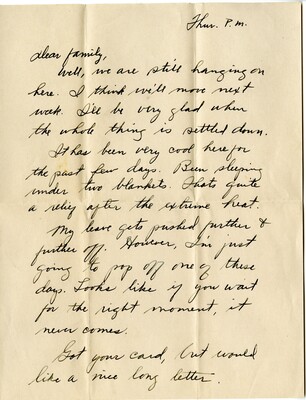 Thur. P.M.
Dear family,
Well, we are still hanging on
here. I think we'll move next
week. I'll be very glad when
the whole thing is settled down.
It has been very cool here for
the past few days. Been sleeping
under two blankets. Thats quite
a relief after the extreme heat.
My leave gets pushed further &
further off. However, I'm just
going to pop off one of these
days. Looks like if you wait
for the right moment, it
never comes.
Got your card, but would
like a nice long letter.